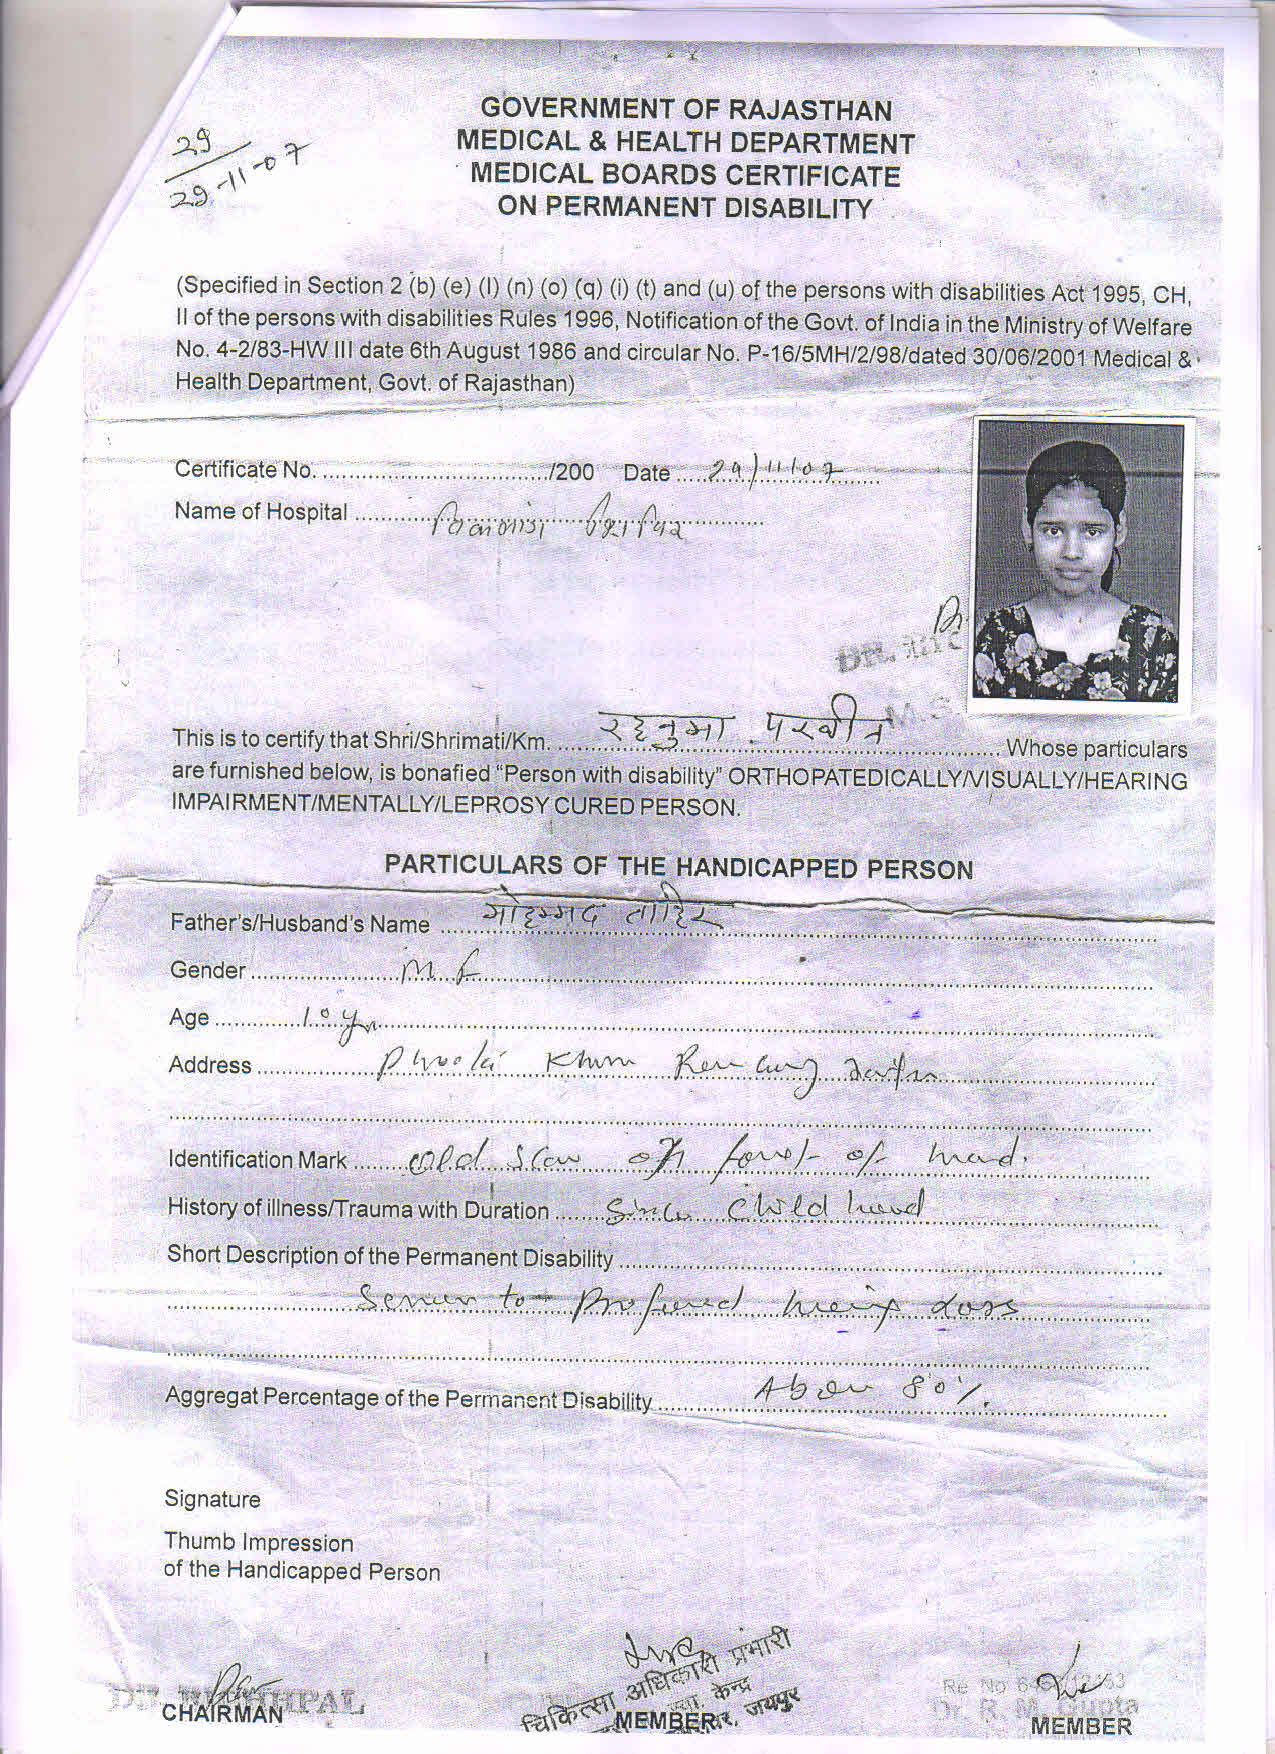 29
29-11-07
GOVERNMENT OF RAJASTHAN
MEDICAL & HEALTH DEPARTMENT
MEDICAL BOARDS CERTIFICATE
ON PERMANENT DISABILITY
(Specified in Section 2 (b) (e) (l) (n) (o) (q) (i) (t) and (u) of the persons with disabilities Act 1995, CH,
II of the persons with disabilities Rules 1996, Notification of the Govt. of India in the Ministry of Welfare
No. 4-2/83-HW III date 6th August 1986 and circular No. P-16/5MH/2/98/dated 30/06/2001 Medical &
Health Department, Govt. of Rajasthan)
Certificate No. ..................................../200 Date .....29/11/07......
Name of Hospital ............विकलांग शिविर............
DR.
M.S.
This is to certify that Shri/Shrimati/Km. रहनुमा परवीन Whose particulars
are furnished below, is bonafied “Person with disability” ORTHOPATEDICALLY/VISUALLY/HEARING
IMPAIRMENT/MENTALLY/LEPROSY CURED PERSON.
PARTICULARS OF THE HANDICAPPED PERSON
Father's/Husband's Name ......मोहम्मद ताहिर......
Gender ......M F......
Age ......10 yr......
Address ......
Identification Mark ......old scar off of head.
History of illness/Trauma with Duration ......Since child hood
Short Description of the Permanent Disability ......
Sever to Profound hearing loss
Aggregat Percentage of the Permanent Disability ......Above 80%.
Signature
Thumb Impression
of the Handicapped Person
CHAIRMAN
चिकित्सा अधिकारी प्रभारी
केन्द्र
जयपुर
MEMBER
Dr. R. M. Gupta
MEMBER